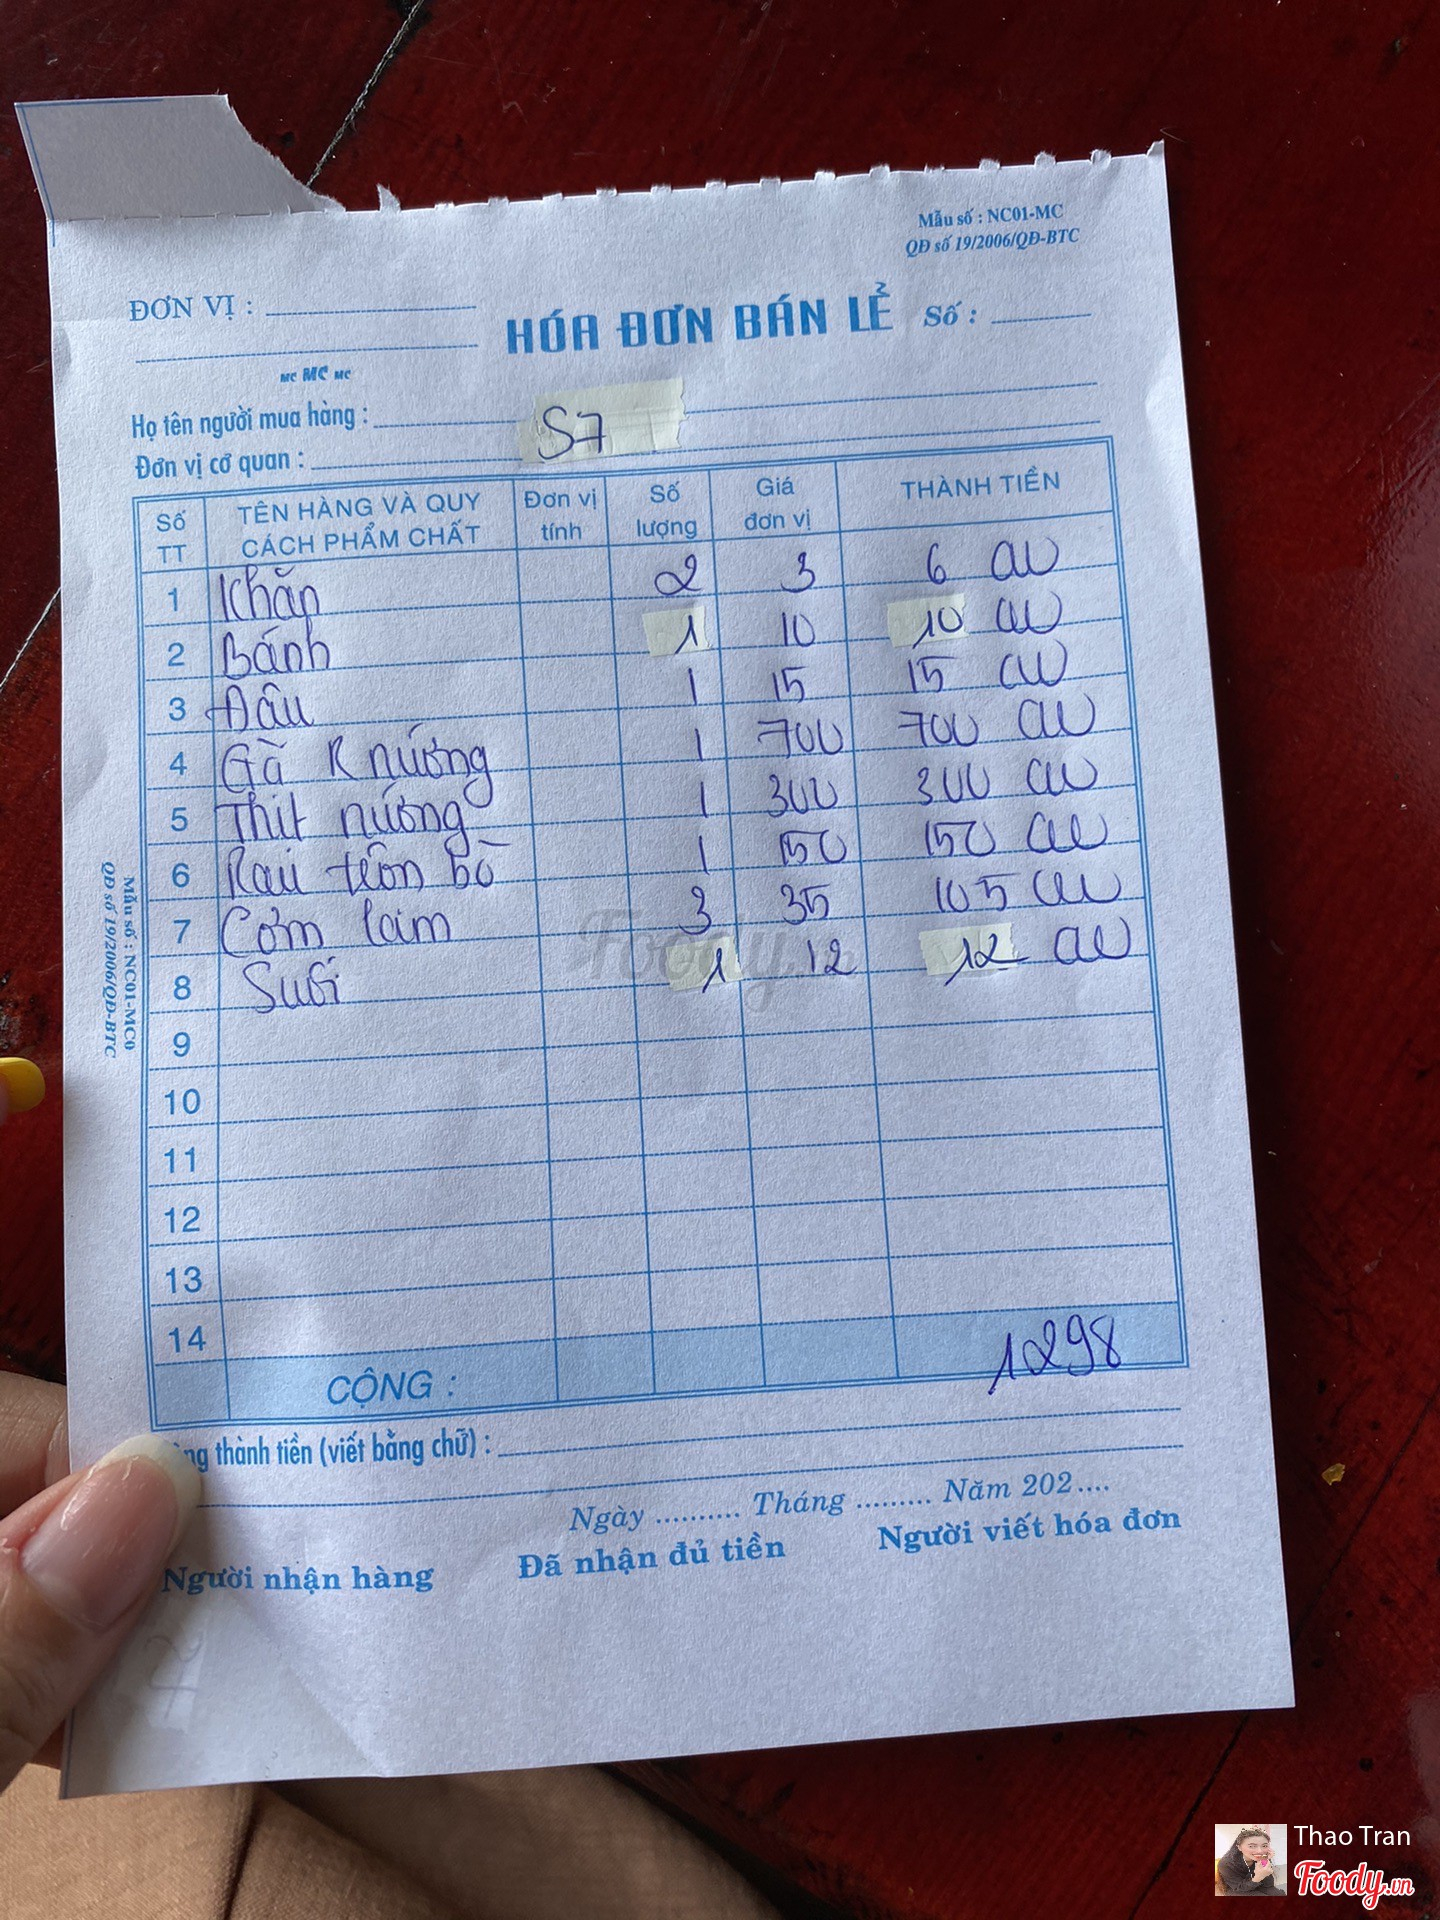 Mẫu số : NC01-MC
QĐ số 19/2006/QĐ-BTC
ĐƠN VỊ :
HÓA ĐƠN BÁN LẺ
Số :
MC MC MC
Họ tên người mua hàng :
S7
Đơn vị cơ quan :
Số TT TÊN HÀNG VÀ QUY CÁCH PHẨM CHẤT Đơn vị tính Số lượng Giá đơn vị THÀNH TIỀN
1 Khăn 2 3 6
2 Bánh 1 10 10
3 Đâu 1 15 15
4 Gà R nướng 1 700 700
5 Thit nướng 1 300 300
6 Rau trôn bò 1 150 150
7 Cơm lam 3 35 105
8 Suối 1 12 12
9
10
11
12
13
14
CỘNG : 1298
thành tiền (viết bằng chữ) :
Ngày .......... Tháng ......... Năm 202....
Người nhận hàng Đã nhận đủ tiền Người viết hóa đơn
Mẫu số : NC01-MC0
QĐ số 19/2006/QĐ-BTC
Foody.vn
Thao Tran
Foody.vn